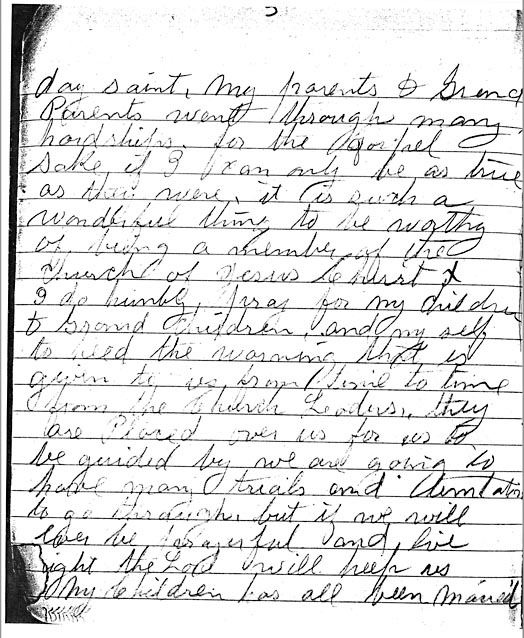 5
day saint, My parents & Grand
Parents went through many
hardships. for the Gospel
sake, if I can only be as true
as they were, it is such a
wonderful thing to be worthy
of being a member of the
Church of Jesus Christ &
I do humbly, pray for my children
& Grand Children, and my self
to heed the warning that is
given to us from time to time
from the Church Leaders, they
are Placed over us for us to
be guided by we are going to
have many trials and temtation
to go through, but if we will
be Prayerful and live
right the Lord will keep us
My Children has all been married